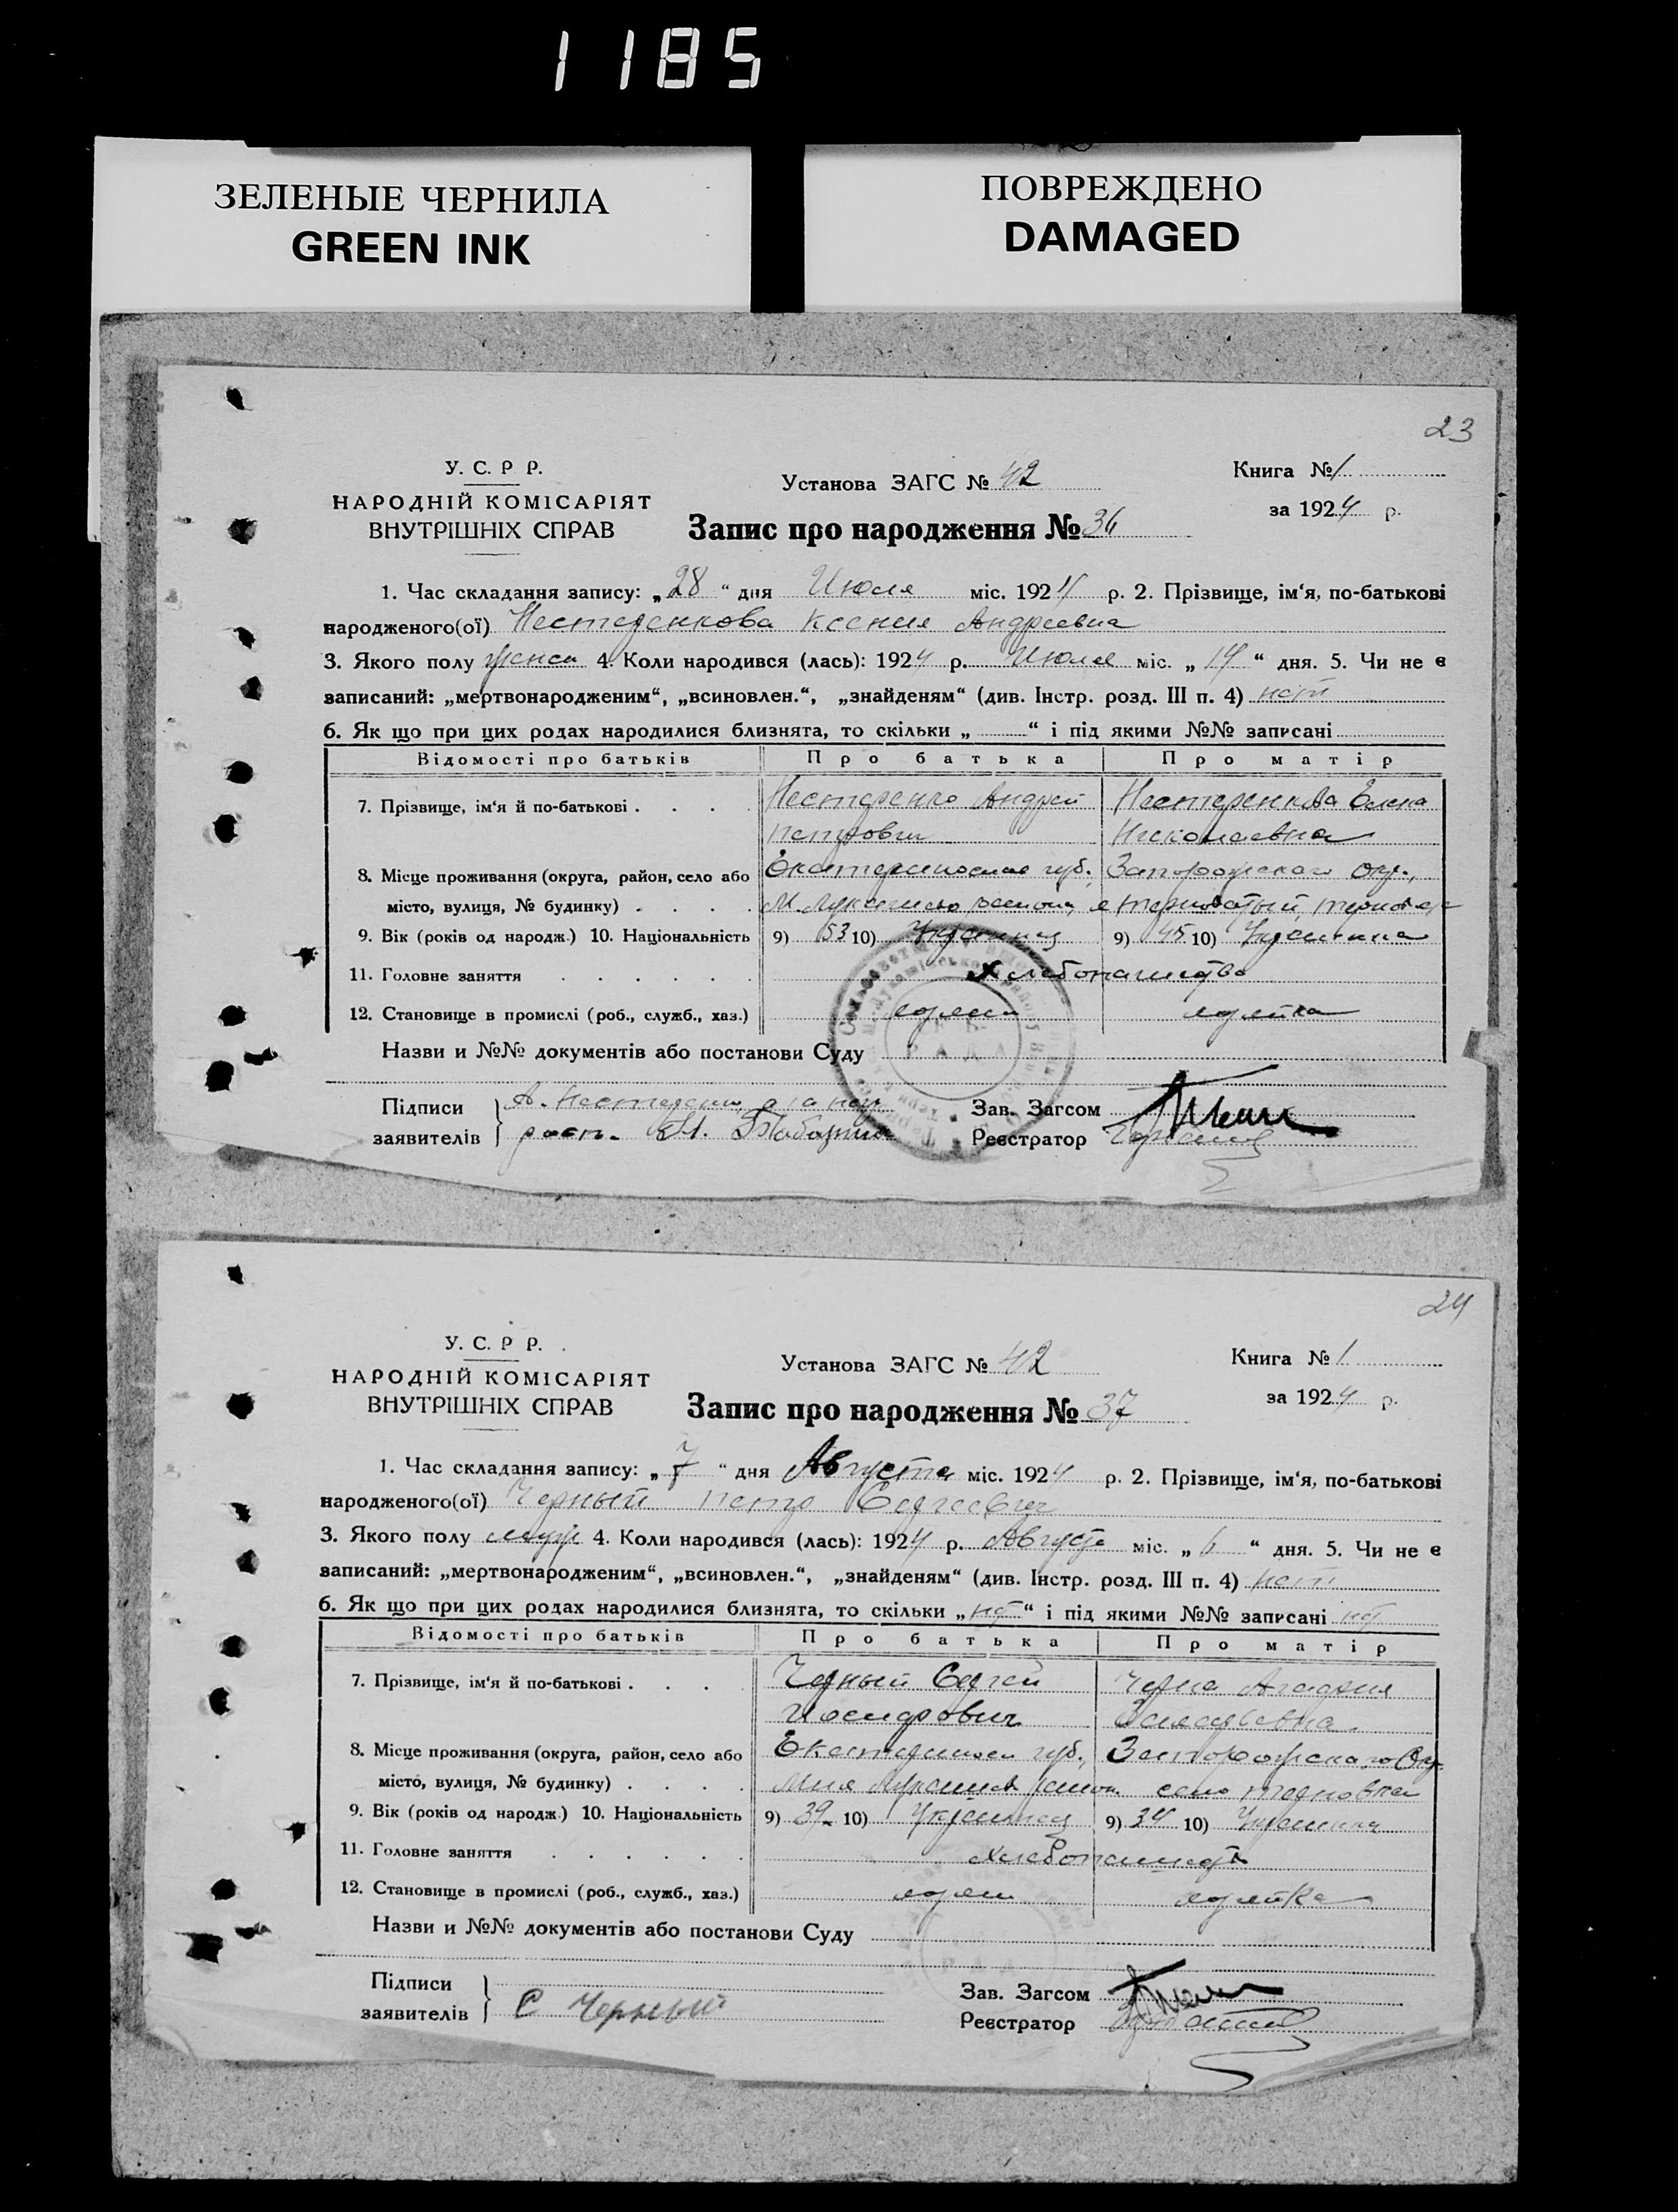 1185
ЗЕЛЕНЫЕ ЧЕРНИЛА
GREEN INK
ПОВРЕЖДЕНО
DAMAGED
23
У. С. Р Р.
НАРОДНІЙ КОМІСАРІЯТ
ВНУТРІШНІХ СПРАВ
Установа ЗАГС № 42
Запис про народження № 36
Книга № 1
за 1924 р.
1. Час складання запису: „28“ дня Июля міс. 1924 р. 2. Прізвище, ім‘я, по-батькові
народженого(ої) Нестеренкова Ксения Андреевна
3. Якого полу женск 4. Коли народився (лась): 1924 р. Июля міс. „14“ дня. 5. Чи не є
записаний: „мертвонародженим“, „всиновлен.“, „знайденям“ (див. Інстр. розд. III п. 4) нет
6. Як що при цих родах народилися близнята, то скільки „ “ і під якими №№ записані
Відомості про батьків Про батька Про матір
7. Прізвище, ім‘я й по-батькові . . . . Нестеренко Андрей Нестеренкова Елена
Петрович Николаевна
8. Місце проживання (округа, район, село або губ. Запорожского окр.,
місто, вулиця, № будинку) . . . .
9. Вік (років од народж.) 10. Національність 9) 53 10) Украинец 9) 45 10) Украинка
11. Головне заняття . . . . . . Хлебопашество
12. Становище в промислі (роб., служб., хаз.) хозяин хозяйка
Назви и №№ документів або постанови Суду
РАДА
Підписи
заявителів
А. Нестеренко
Зав. Загсом
Реєстратор
24
У. С. Р Р.
НАРОДНІЙ КОМІСАРІЯТ
ВНУТРІШНІХ СПРАВ
Установа ЗАГС № 42
Запис про народження № 37
Книга № 1
за 1924 р.
1. Час складання запису: „7“ дня Августа міс. 1924 р. 2. Прізвище, ім‘я, по-батькові
народженого(ої) Черный Петр Сергеевич
3. Якого полу муж 4. Коли народився (лась): 1924 р. Августа міс. „ “ дня. 5. Чи не є
записаний: „мертвонародженим“, „всиновлен.“, „знайденям“ (див. Інстр. розд. III п. 4) нет
6. Як що при цих родах народилися близнята, то скільки „нет“ і під якими №№ записані нет
Відомості про батьків Про батька Про матір
7. Прізвище, ім‘я й по-батькові . . . . Черный Сергей
8. Місце проживання (округа, район, село або губ. Запорожского Окр.
місто, вулиця, № будинку) . . . . село
9. Вік (років од народж.) 10. Національність 9) 39 10) Украинец 9) 34 10) Украинка
11. Головне заняття . . . . . . Хлебопашество
12. Становище в промислі (роб., служб., хаз.) хозяин хозяйка
Назви и №№ документів або постанови Суду
Підписи
заявителів
С Черный
Зав. Загсом
Реєстратор